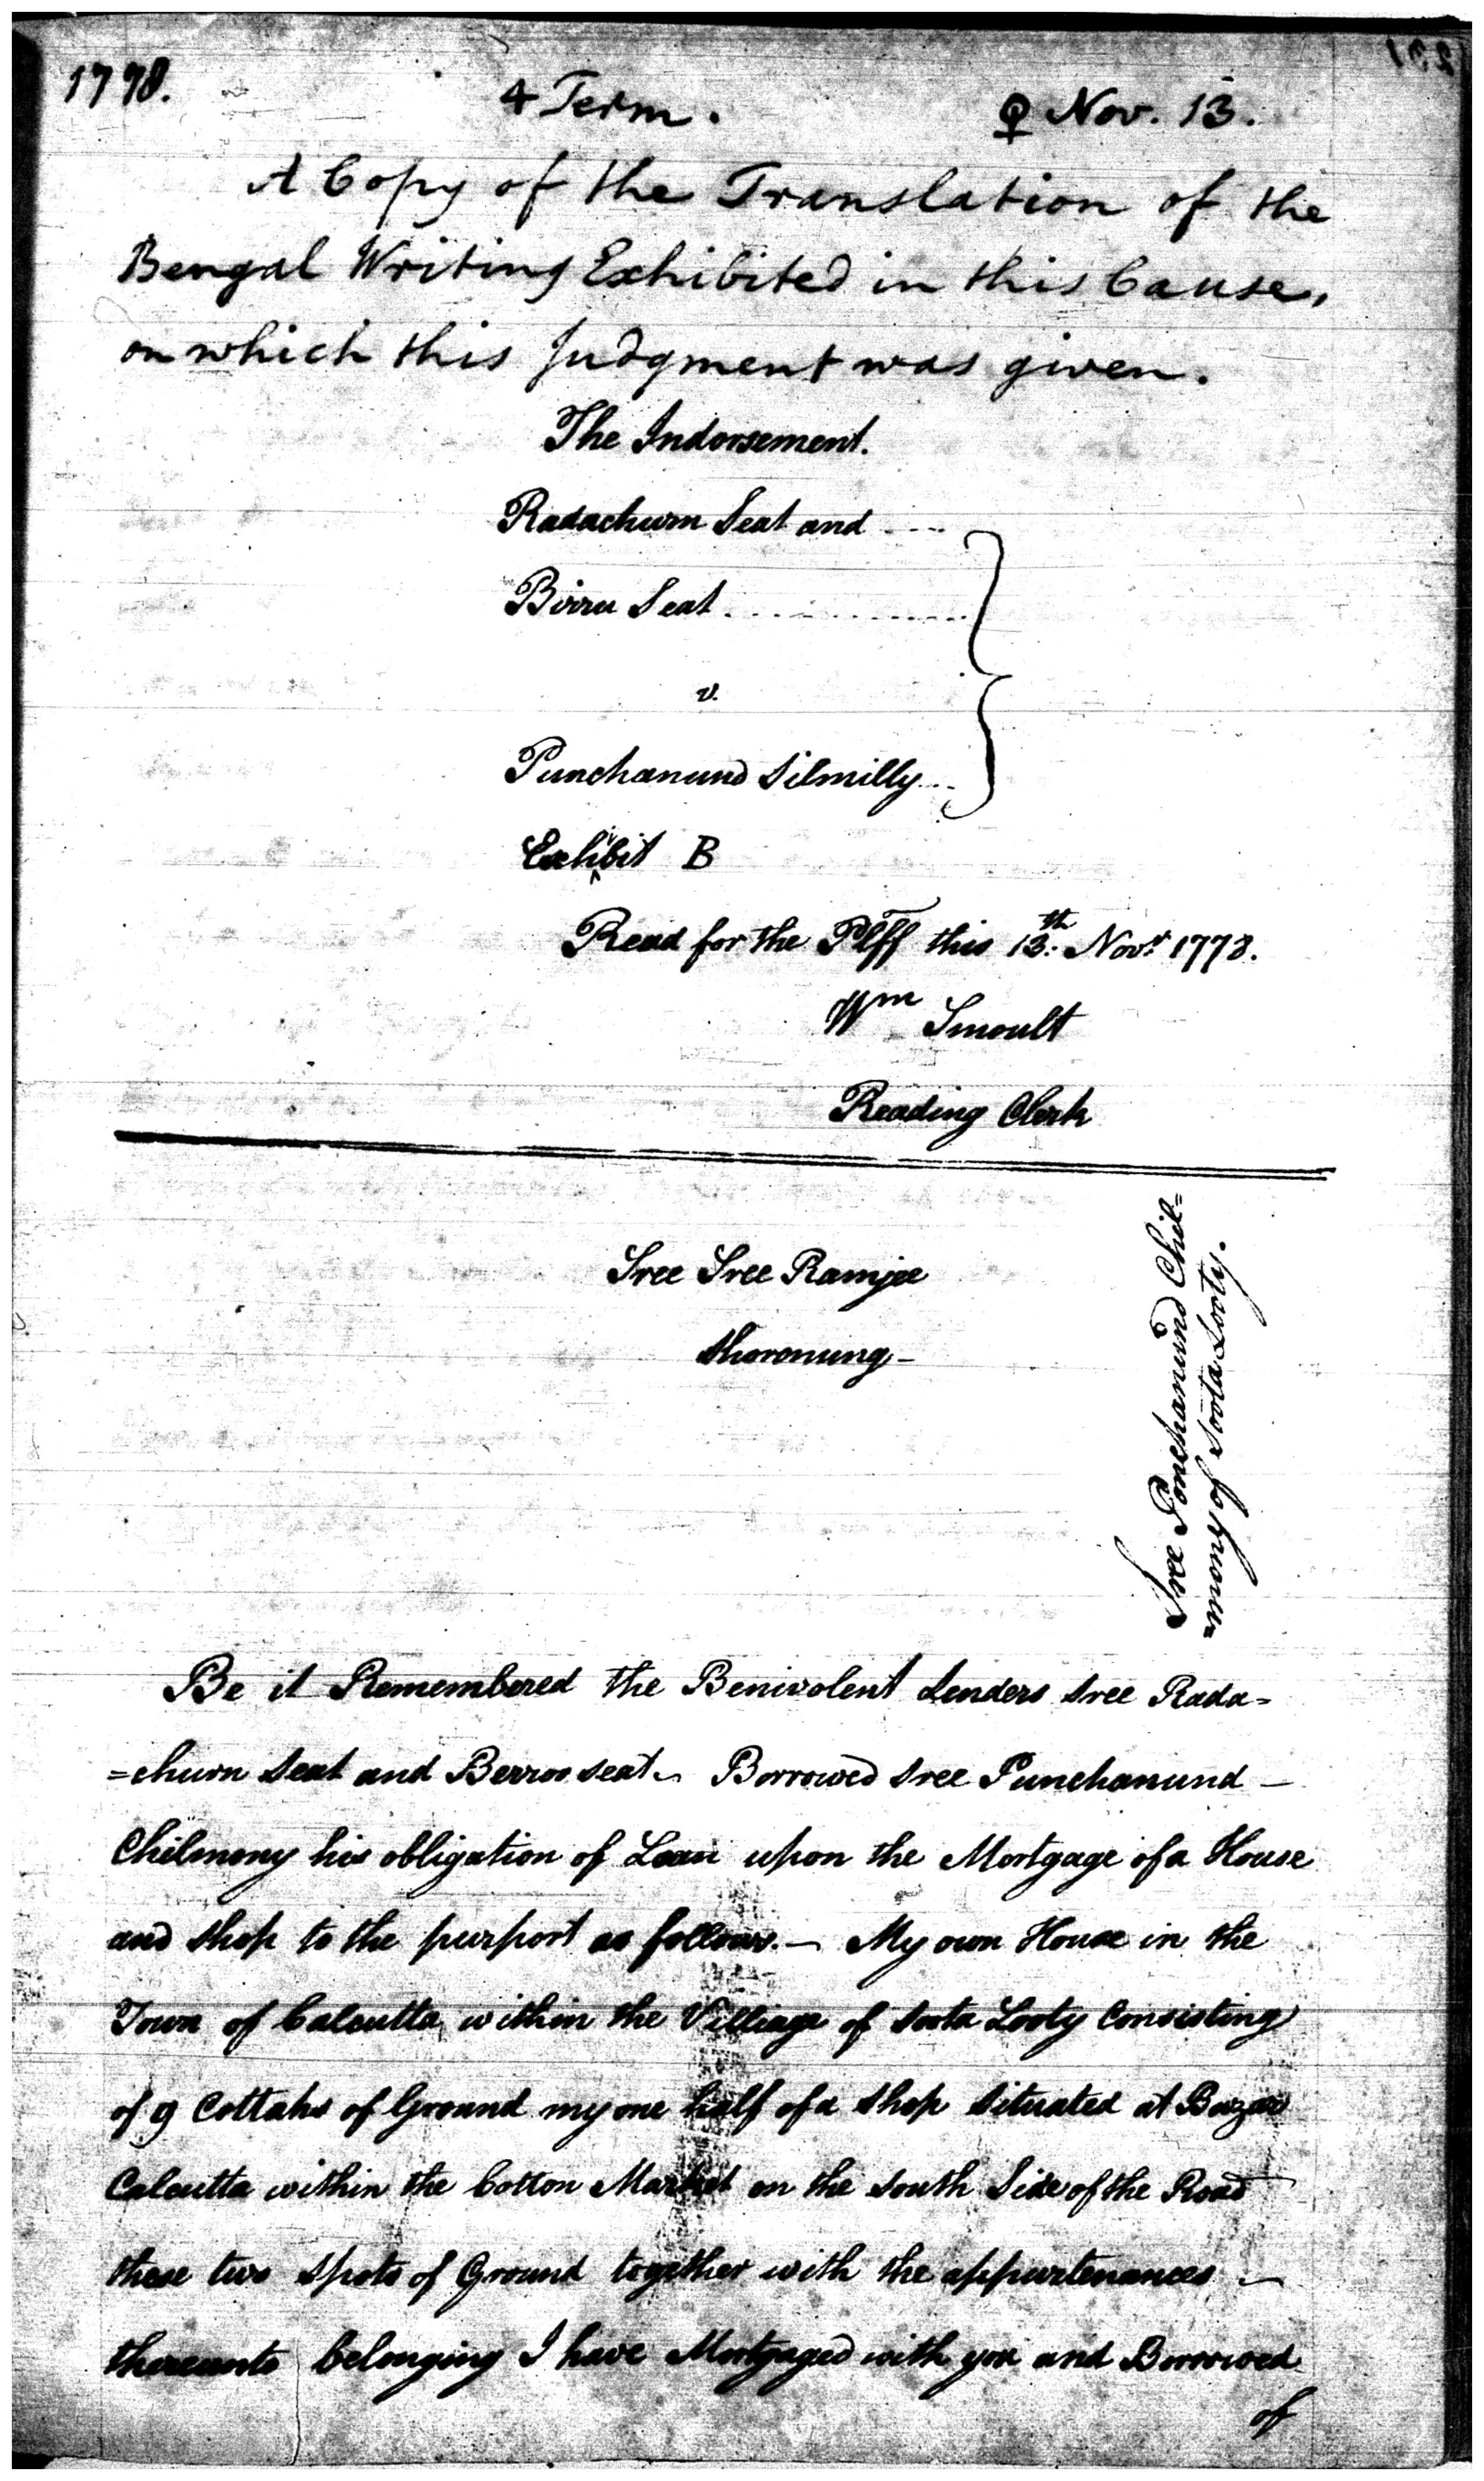 1778.
4 Term.
♀ Nov. 13.
A Copy of the Translation of the
Bengal Writing Exhibited in this Cause,
on which this Judgment was given.
The Indorsement.
Radachurn Seat and ....
Birru Seat ..............
v.
Punchanund Silmilly...
Exhibit B
Read for the Plff this 13th. Novr. 1778.
Wm Smoult
Reading Clerk
Sree Sree Ramjee
Shoronung-
Sree Ponchanund Chil=
=mony of Soota Looty.
Be it Remembered the Benivolent Lenders Sree Rada=
=churn Seat and Berroo Seat. Borrowed Sree Punchanund —
Chilmony his obligation of Loan upon the Mortgage of a House
and Shop to the purport as follows. — My own House in the
Town of Calcutta within the Villiage of Soota Looty Consisting
of 9 Cottahs of Ground my one half of a Shop Situated at Bazar
Calcutta within the Cotton Market on the South Side of the Road
these two Spots of Ground together with the appurtenances —
thereunto belonging I have Mortgaged with you and Borrowed
of